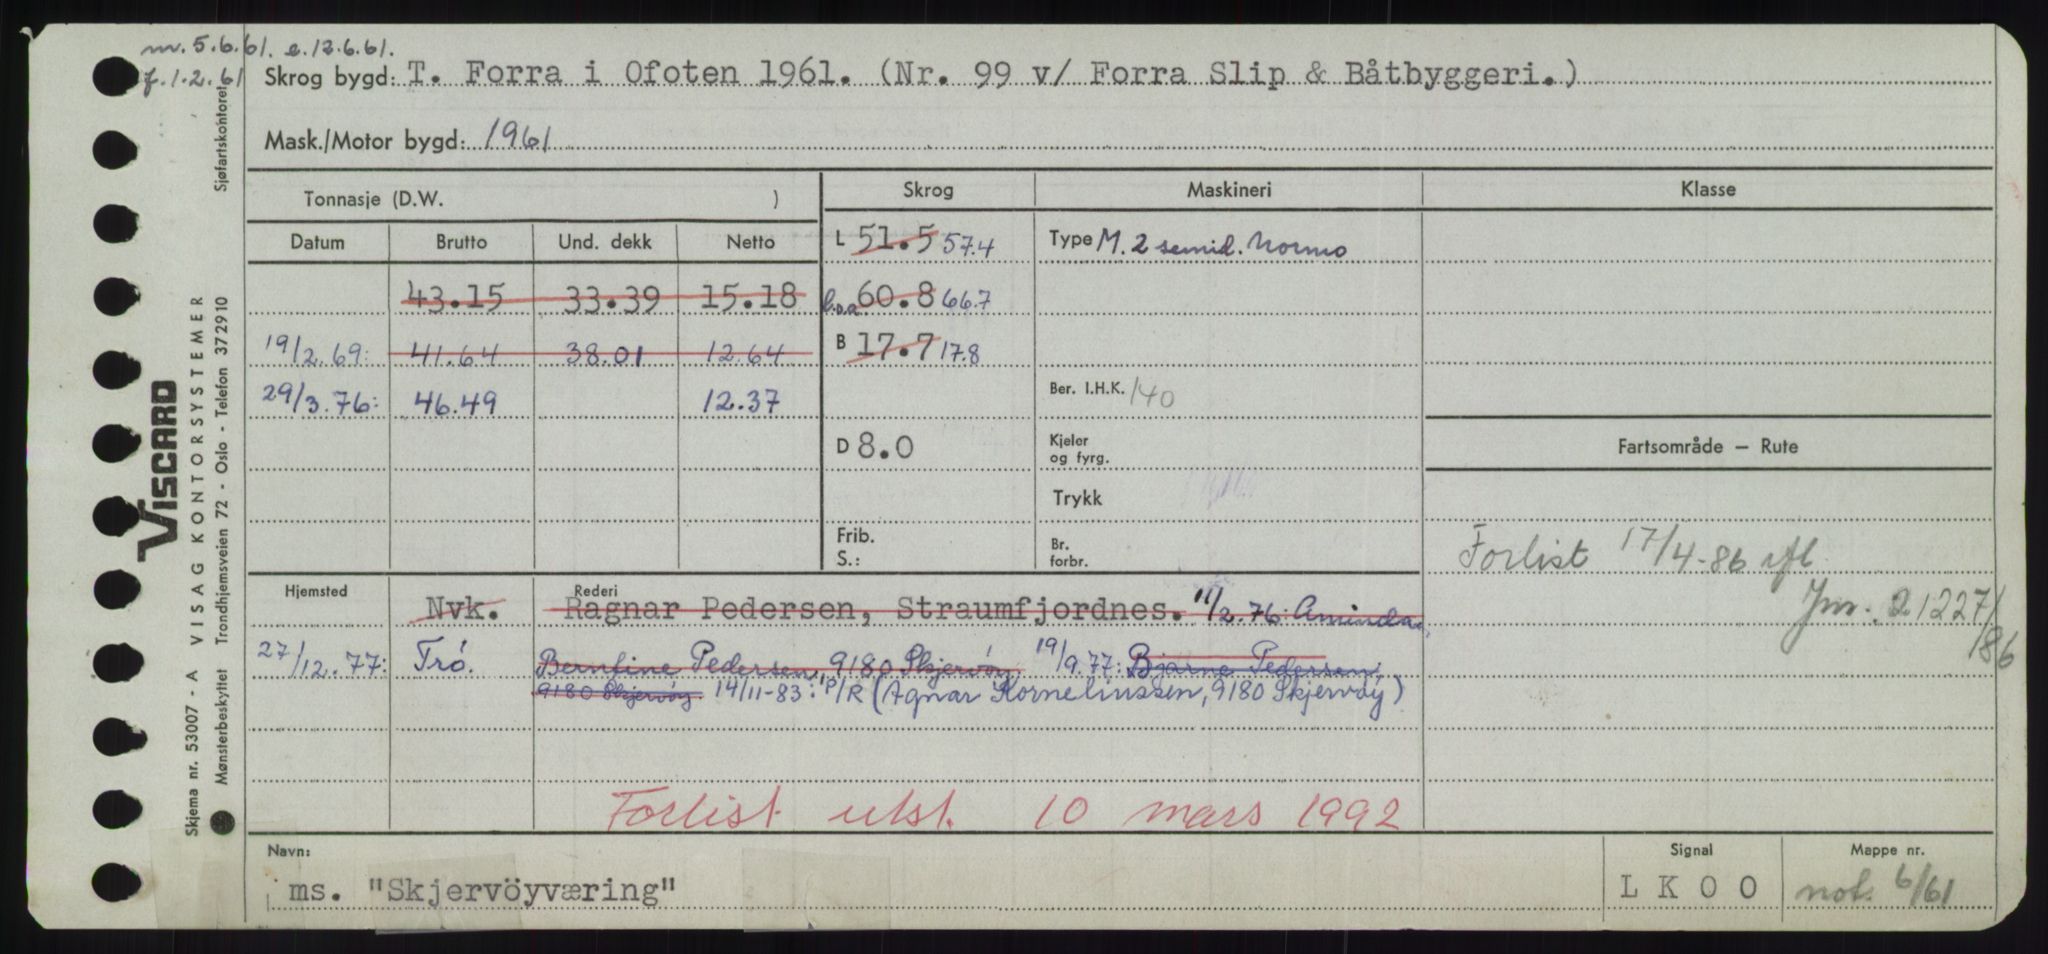 m. 5.6.61. e. 12.6.61.
f. 1.2.61
Skrog bygd: T. Forra i Ofoten 1961. (Nr. 99 v/ Forra Slip & Båtbyggeri.)
Mask./Motor bygd: 1961
Tonnasje (D.W. ) Skrog Maskineri Klasse
Datum Brutto Und. dekk Netto L 51.5 57.4 Type M. 2 semid. Normo
43.15 33.39 15.18 l.o.a. 60.8 66.7
19/2.69: 41.64 38.01 12.64 B 17.7 17.8
29/3.76: 46.49 12.37 Ber. I.H.K. 140
D 8.0 Kjeler og fyrg. Fartsområde — Rute
Trykk
Frib.
S.:
Br. forbr.
Forlist 17/4-86
Jnr. 21227/86
Hjemsted Rederi
Nvk. Ragnar Pedersen, Straumfjordnes. 11/2.76: Aminda
27/12.77: Trö. Berntine Pedersen, 9180 Skjervöy 19/9.77: Bjarne Pedersen,
9180 Skjervöy 14/11-83: P/R (Agnar Korneliussen, 9180 Skjervöy)
Forlist utst. 10 mars 1992
Navn: Signal Mappe nr.
ms. "Skjervöyværing" LKOO not. 6/61
VISCARD
VISAG KONTORSYSTEMER
Skjema nr. 53007 - A
Mønsterbeskyttet Trondhjemsveien 72 - Oslo - Telefon 372910 Sjøfartskontoret